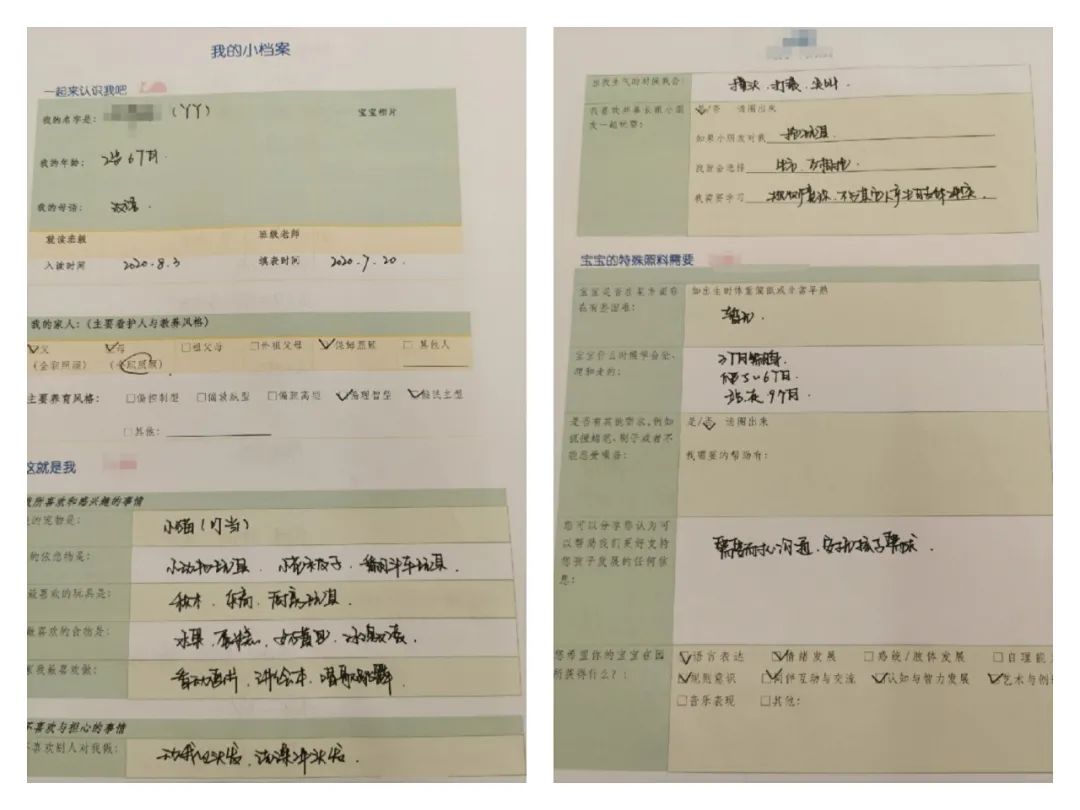 我的小档案
一起来认识我吧
我的名字是： （丫丫） 宝宝相片
我的年龄： 2岁6个月.
我的母语： 汉语.
就读班级 班级老师
入读时间 2020.8.3 填表时间 2020.7.20.
我的家人：（主要看护人与教养风格）
父 母 祖父母 外祖父母 保姆照顾 其他人
（全职照顾） （全职照顾）
主要养育风格： 偏控制型 偏放纵型 偏距离型 偏理智型 偏民主型
其他：
这就是我
我所喜欢和感兴趣的事情
的宠物是： 小猫（叮当）
的依恋物是： 小动物玩具 小被子 翻斗车玩具.
最喜欢的玩具是： 积木. 厨房玩具.
最喜欢的食物是： 水果.
家我最喜欢做： 看动画片. 讲绘本. 唱歌跳舞
不喜欢与担心的事情
不喜欢别人对我做： 动我的头发. 洗澡冲头发.
当我生气的时候我会： 摸头. 打最. 尖叫.
我喜欢和年长的小朋 是/否 请圈出来
友一起玩耍：
如果小朋友对我 抢玩具
我会选择
我需要学习
宝宝的特殊原料需要
宝宝是否在某方面存 如出生时体重偏低或非常早熟
在有些困难： 暂无.
宝宝什么时候学会坐、 2个月翻身.
爬和走的： 6个月.
站在9个月.
是否有其他需求，例如 是/否 请圈出来
抓握蜡笔、刷子或者不
能忍受噪音： 我需要的帮助有：
您可以分享您认为可
以帮助我们更好支持 需要耐心沟通.
您孩子发展的任何信
息：
您希望你的宝宝在园 语言表达 情绪发展 感统/肢体发展 自理能
所获得什么？： 规则意识 同伴互动与交流 认知与智力发展 艺术与创
音乐表现 其他：